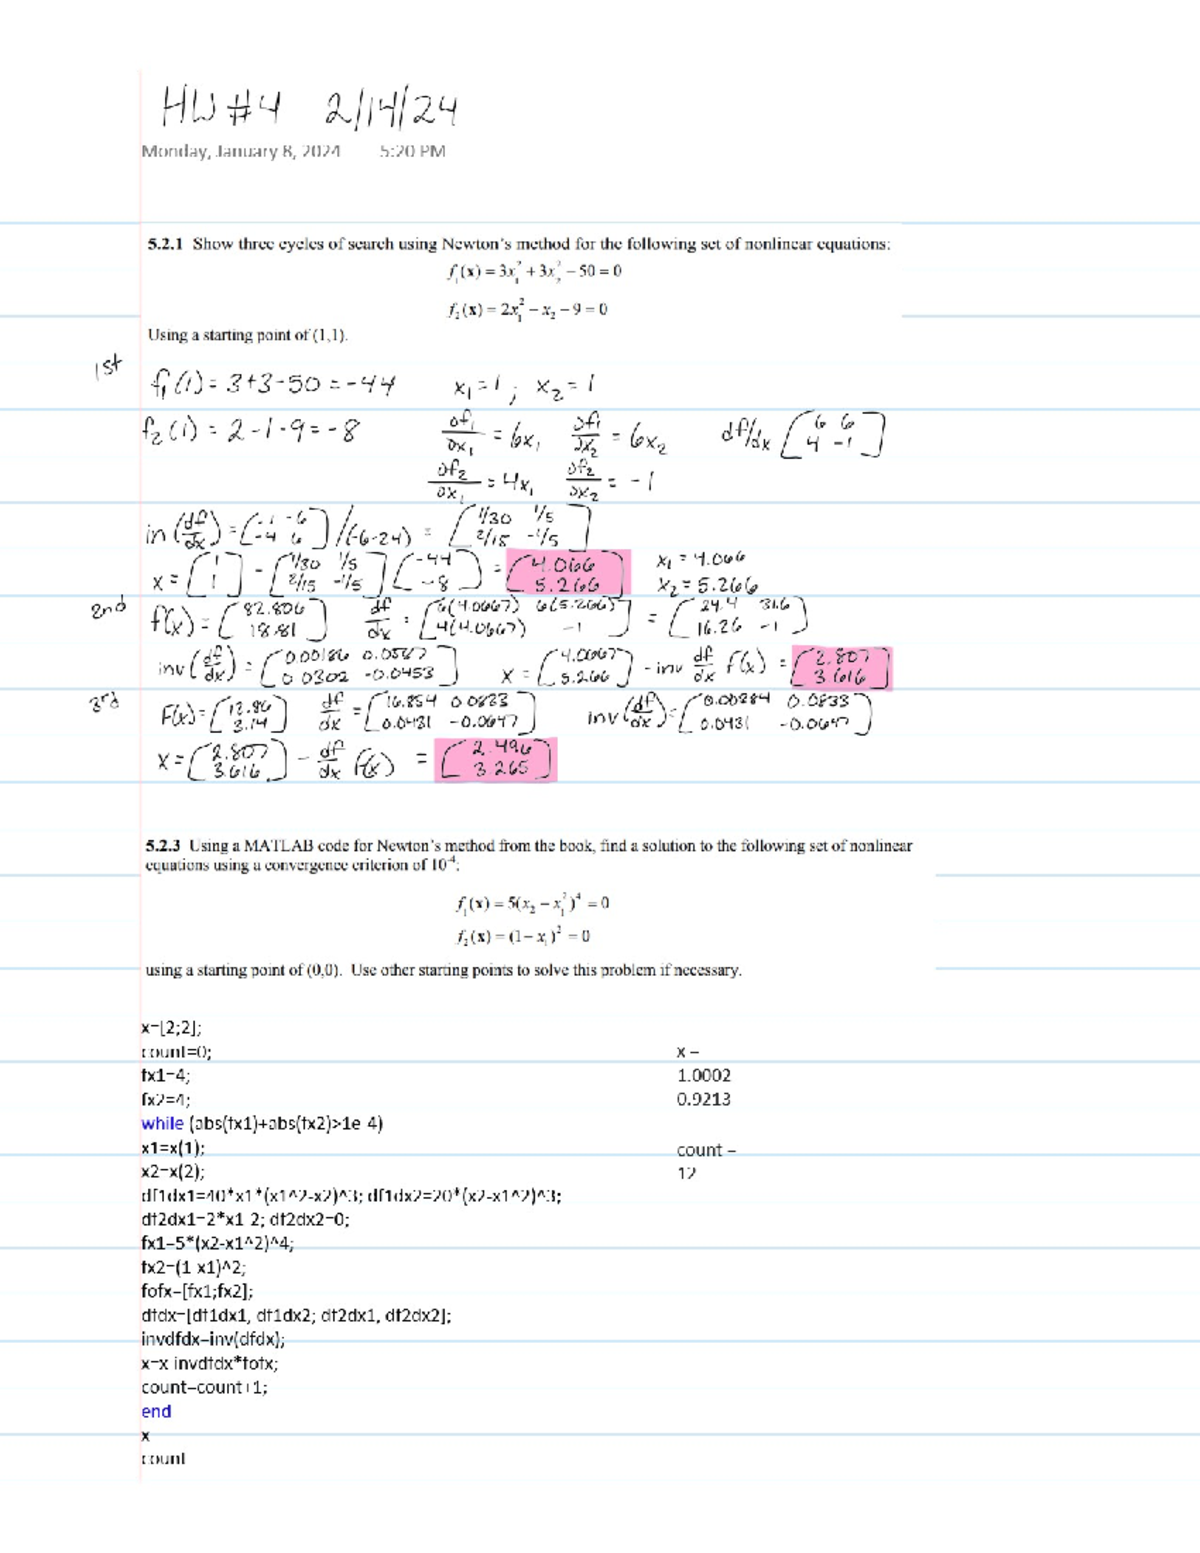 HW #4 2/14/24
Monday, January 8, 2024 5:20 PM
5.2.1 Show three cycles of search using Newton's method for the following set of nonlinear equations:
f₁(x) = 3x₁² + 3x₂² − 50 = 0
f₂(x) = 2x₁² − x₂ − 9 = 0
Using a starting point of (1,1).
1st
f₁(1) = 3+3-50 = -44 x₁ = 1 ; x₂ = 1
f₂(1) = 2-1-9 = -8 ∂f₁/∂x₁ = 6x₁ ∂f₁/∂x₂ = 6x₂ df/dx [6 6; 4 -1]
∂f₂/∂x₁ = 4x₁ ∂f₂/∂x₂ = -1
in (df/dx) = [-1 -6; -4 6] /(-6-24) = [1/30 1/5; 2/15 -1/5]
x = [1; 1] - [1/30 1/5; 2/15 -1/5] [-44; -8] = [4.066; 5.266] x₁ = 4.066 x₂ = 5.266
2nd f(x) = [82.806; 18.81] df/dx = [6(4.0667) 6(5.266); 4(4.0667) -1] = [24.4 31.6; 16.26 -1]
inv (df/dx) = [0.00186 0.0587; 0.0302 -0.0453] x = [4.0667; 5.266] - inv df/dx f(x) = [2.807; 3.616]
3rd F(x) = [12.86; 3.14] df/dx = [16.854 0.0833; 0.0431 -0.0647] inv (df/dx) = [0.00284 0.0833; 0.0431 -0.0647]
x = [2.807; 3.616] - df/dx f(x) = [2.496; 3.265]
5.2.3 Using a MATLAB code for Newton's method from the book, find a solution to the following set of nonlinear
equations using a convergence criterion of 10⁻⁴:
f₁(x) = 5(x₂ − x₁²)⁴ = 0
f₂(x) = (1 − x₁)² = 0
using a starting point of (0,0). Use other starting points to solve this problem if necessary.
x=[2;2];
count=0;
fx1=4;
fx2=4;
while (abs(fx1)+abs(fx2)>1e-4)
x1=x(1);
x2=x(2);
df1dx1=40*x1*(x1^2-x2)^3; df1dx2=20*(x2-x1^2)^3;
df2dx1=2*x1-2; df2dx2=0;
fx1=5*(x2-x1^2)^4;
fx2=(1-x1)^2;
fofx=[fx1;fx2];
dfdx=[df1dx1, df1dx2; df2dx1, df2dx2];
invdfdx=inv(dfdx);
x=x-invdfdx*fofx;
count=count+1;
end
x
count
x =
1.0002
0.9213
count =
12